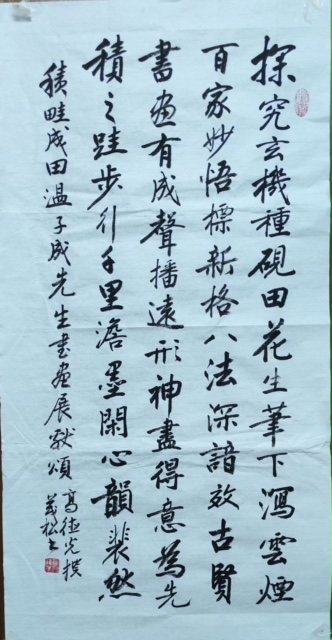 探究玄機種硯田花生筆下瀉雲煙
百家妙悟標新格八法深諳效古賢
書畫有成聲播遠形神盡得意為先
積之跬步行千里澹墨閑心韻裴然
積畦成田溫子成先生書畫展獻頌
高德光撰
義松書